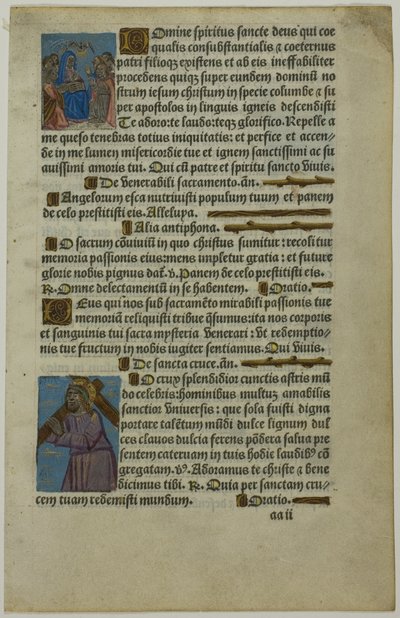 Domine spiritus sancte deus qui coe
qualis consubstantialis & coeternus
patri filioq; existens et ab eis ineffabiliter
procedens quiq; super eundem dominū no
strum iesum christum in specie columbe & su
per apostolos in linguis igneis descendisti
Te adoro: te laudo: teq; glorifico. Repelle a
me queso tenebras totius iniquitatis: et perfice et accen
de in me lumen misericordie tue et ignem sanctissimi ac su
auissimi amoris tui. Qui cū patre et spiritu sancto viuis.
De venerabili sacramento. añ.
Angelorum esca nutriuisti populum tuum et panem
de celo prestitisti eis. Alleluya.
Alia antiphona.
O sacrum cōuiuiū in quo christus sumitur: recolitur
memoria passionis eius: mens impletur gratia: et future
glorie nobis pignus dat̄. v. Panem de celo prestitisti eis.
R. Omne delectamentū in se habentem. Oratio.
Deus qui nos sub sacramēto mirabili passionis tue
memoriā reliquisti tribue q̄sumus: ita nos corporis
et sanguinis tui sacra mysteria venerari: vt redemptio-
nis tue fructum in nobis iugiter sentiamus. Qui viuis.
De sancta cruce. añ.
O crux splendidior cunctis astris mū
do celebris: hominibus multuʒ amabilis
sanctior vniuersis: que sola fuisti digna
portare talētum mūdi dulce lignum dul
ces clauos dulcia ferens pōdera salua pre
sentem cateruam in tuis hodie laudibꝰ cō
gregatam. v. Adoramus te christe & bene
dicimus tibi. R. Quia per sanctam cru-
cem tuam redemisti mundum. Oratio.
aa ii